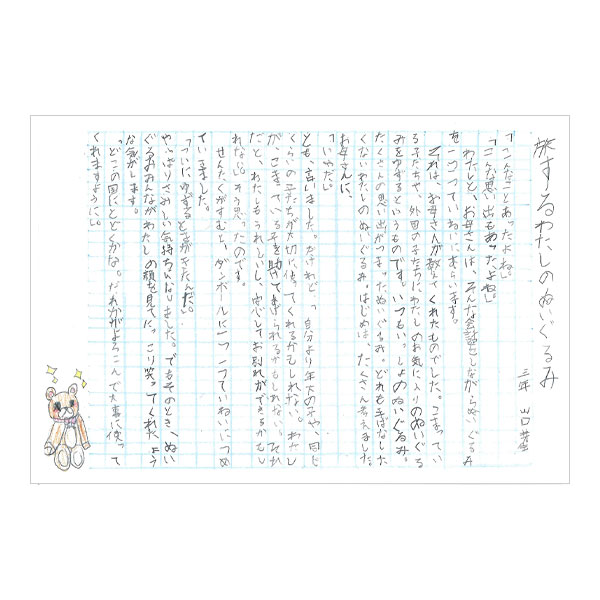 旅するわたしのぬいぐるみ
三年 山口
「こんなことあったよね。」
「こんな思い出もあったよね。」
わたしと、お母さんは、そんな会話をしながらぬいぐるみ
を一つ一つていねいにあらいます。
それは、お母さんが教えてくれたものでした。こまってい
る子たちや、外国の子たちにわたしのお気に入りのぬいぐる
みをゆずるというものです。いつもいっしょのぬいぐるみ。
たくさんの思い出がつまったぬいぐるみ。どれも手ばなした
くないわたしのぬいぐるみ。はじめは、たくさん考えました。
お母さんに、
「いやだ。」
とも、言いました。だけれど、「自分より年下の子や、同じ
くらいの子たちが大切に使ってくれるかもしれない。わたし
が、こまっている子を助けてあげられるかもしれない。それ
だと、わたしもうれしいし、安心してお別れができるかもし
れない。」そう思ったのです。
せんたくがすむと、ダンボールに一つ一つていねいにつめ
ていきました。
「ついにゆずるときがきたんだ。」
やっぱりさみしい気持ちになりました。でもそのとき、ぬい
ぐるみみんながわたしの顔を見てにっこり笑ってくれたよう
な気がします。
「どこの国にとどくかな。だれかがよろこんで大事に使って
くれますように。」